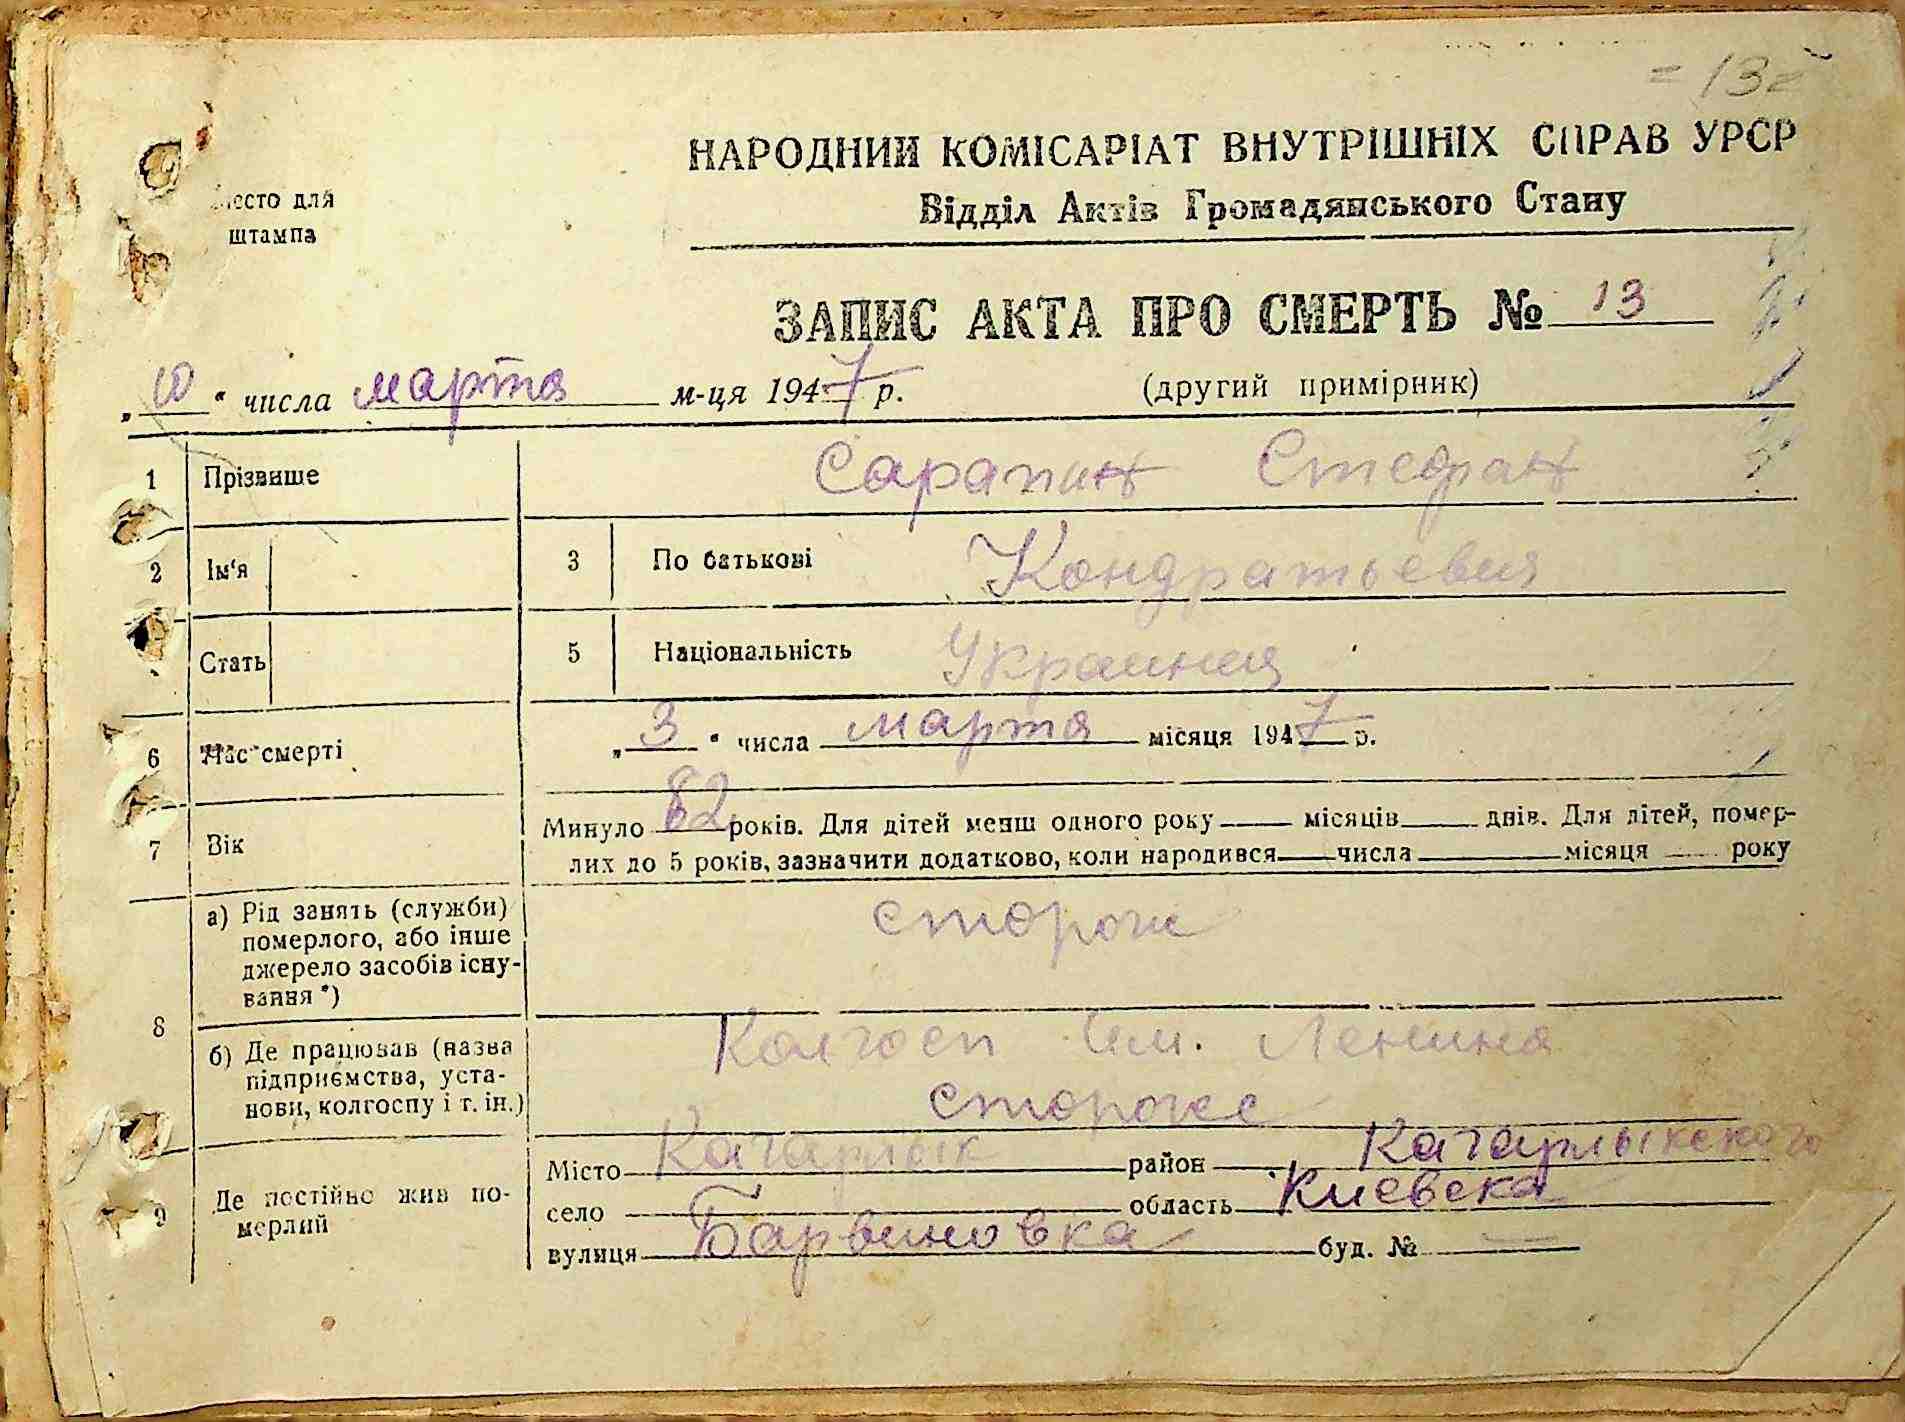 = 13 =
Место для
штампа
НАРОДНИЙ КОМІСАРІАТ ВНУТРІШНІХ СПРАВ УРСР
Відділ Актів Громадянського Стану
ЗАПИС АКТА ПРО СМЕРТЬ № 13
„10“ числа марта м-ця 1947 р. (другий примірник)
1 Прізвише Сарапин Стефан
2 Ім'я 3 По батькові Кондратьевич
Стать 5 Національність Украинец
6 Час смерті „3“ числа марта місяця 1947 р.
7 Вік Минуло 82 років. Для дітей менш одного року — місяців — днів. Для дітей, помер-
лих до 5 років, зазначити додатково, коли народився — числа — місяця — року
8 а) Рід занять (служби)
померлого, або інше
джерело засобів існу-
вання *)
сторож
б) Де працював (назва
підприємства, уста-
нови, колгоспу і т. ін.)
Колгосп им. Ленина
стороже
9 Де постійно жив по-
мерлий
Місто Кагарлык район Кагарлыкского
село область Киевска
вулиця Барвиновка буд. № —